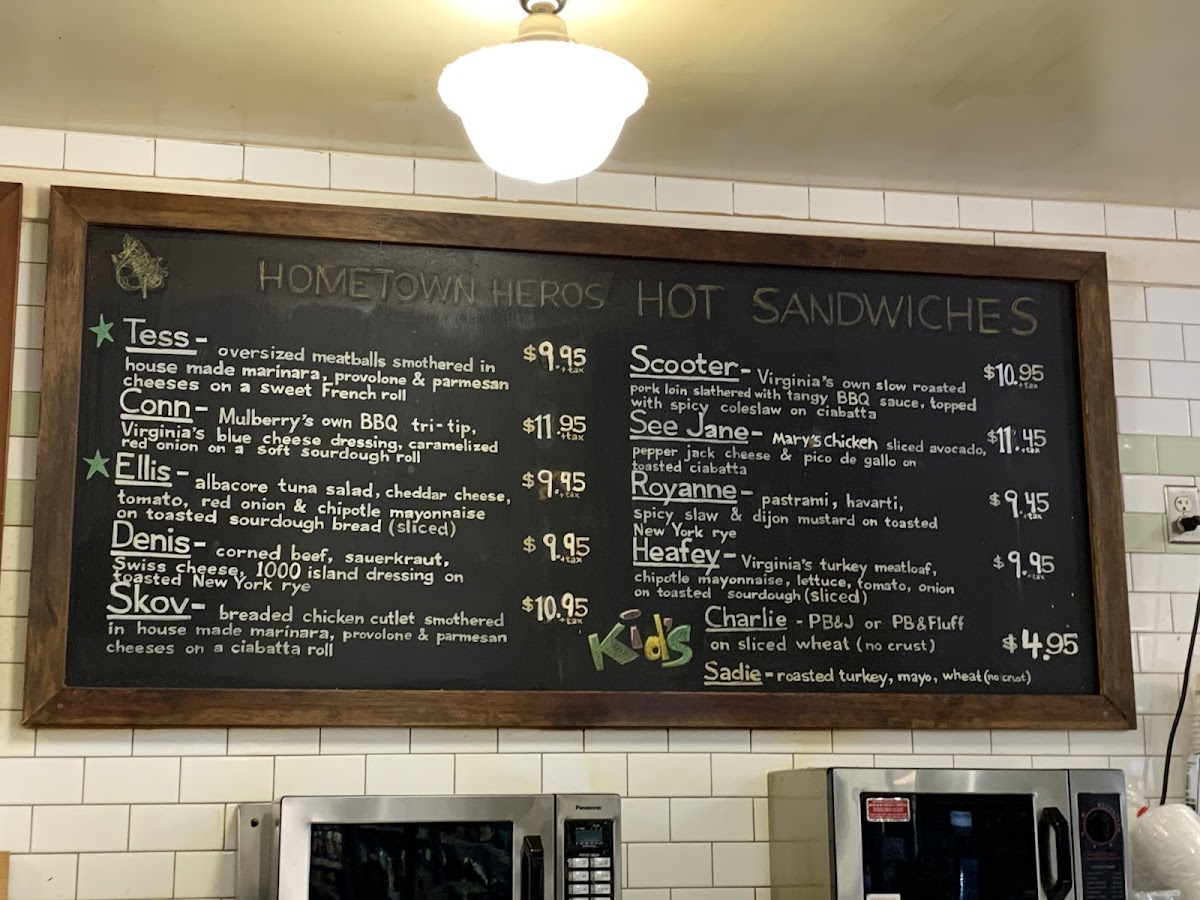 HOMETOWN HEROS HOT SANDWICHES
Tess- oversized meatballs smothered in $9.95 +tax
house made marinara, provolone & parmesan
cheeses on a sweet French roll
Conn- Mulberry's own BBQ tri-tip, $11.95 +tax
Virginia's blue cheese dressing, caramelized
red onion on a soft sourdough roll
Ellis- albacore tuna salad, cheddar cheese, $9.45 +tax
tomato, red onion & chipotle mayonnaise
on toasted sourdough bread (sliced)
Denis- corned beef, sauerkraut, $9.95 +tax
Swiss cheese, 1000 island dressing on
toasted New York rye
Skov- breaded chicken cutlet smothered $10.95 +tax
in house made marinara, provolone & parmesan
cheeses on a ciabatta roll
Scooter- Virginia's own slow roasted $10.95 +tax
pork loin slathered with tangy BBQ sauce, topped
with spicy coleslaw on ciabatta
See Jane- Mary's Chicken sliced avocado, $11.45 +tax
pepper jack cheese & pico de gallo on
toasted ciabatta
Royanne- pastrami, havarti, $9.45 +tax
spicy slaw & dijon mustard on toasted
New York rye
Heafey- Virginia's turkey meatloaf, $9.95 +tax
chipotle mayonnaise, lettuce, tomato, onion
on toasted sourdough (sliced)
Kid's
Charlie - PB&J or PB&Fluff
on sliced wheat (no crust) $4.95
Sadie- roasted turkey, mayo, wheat (no crust)
Panasonic